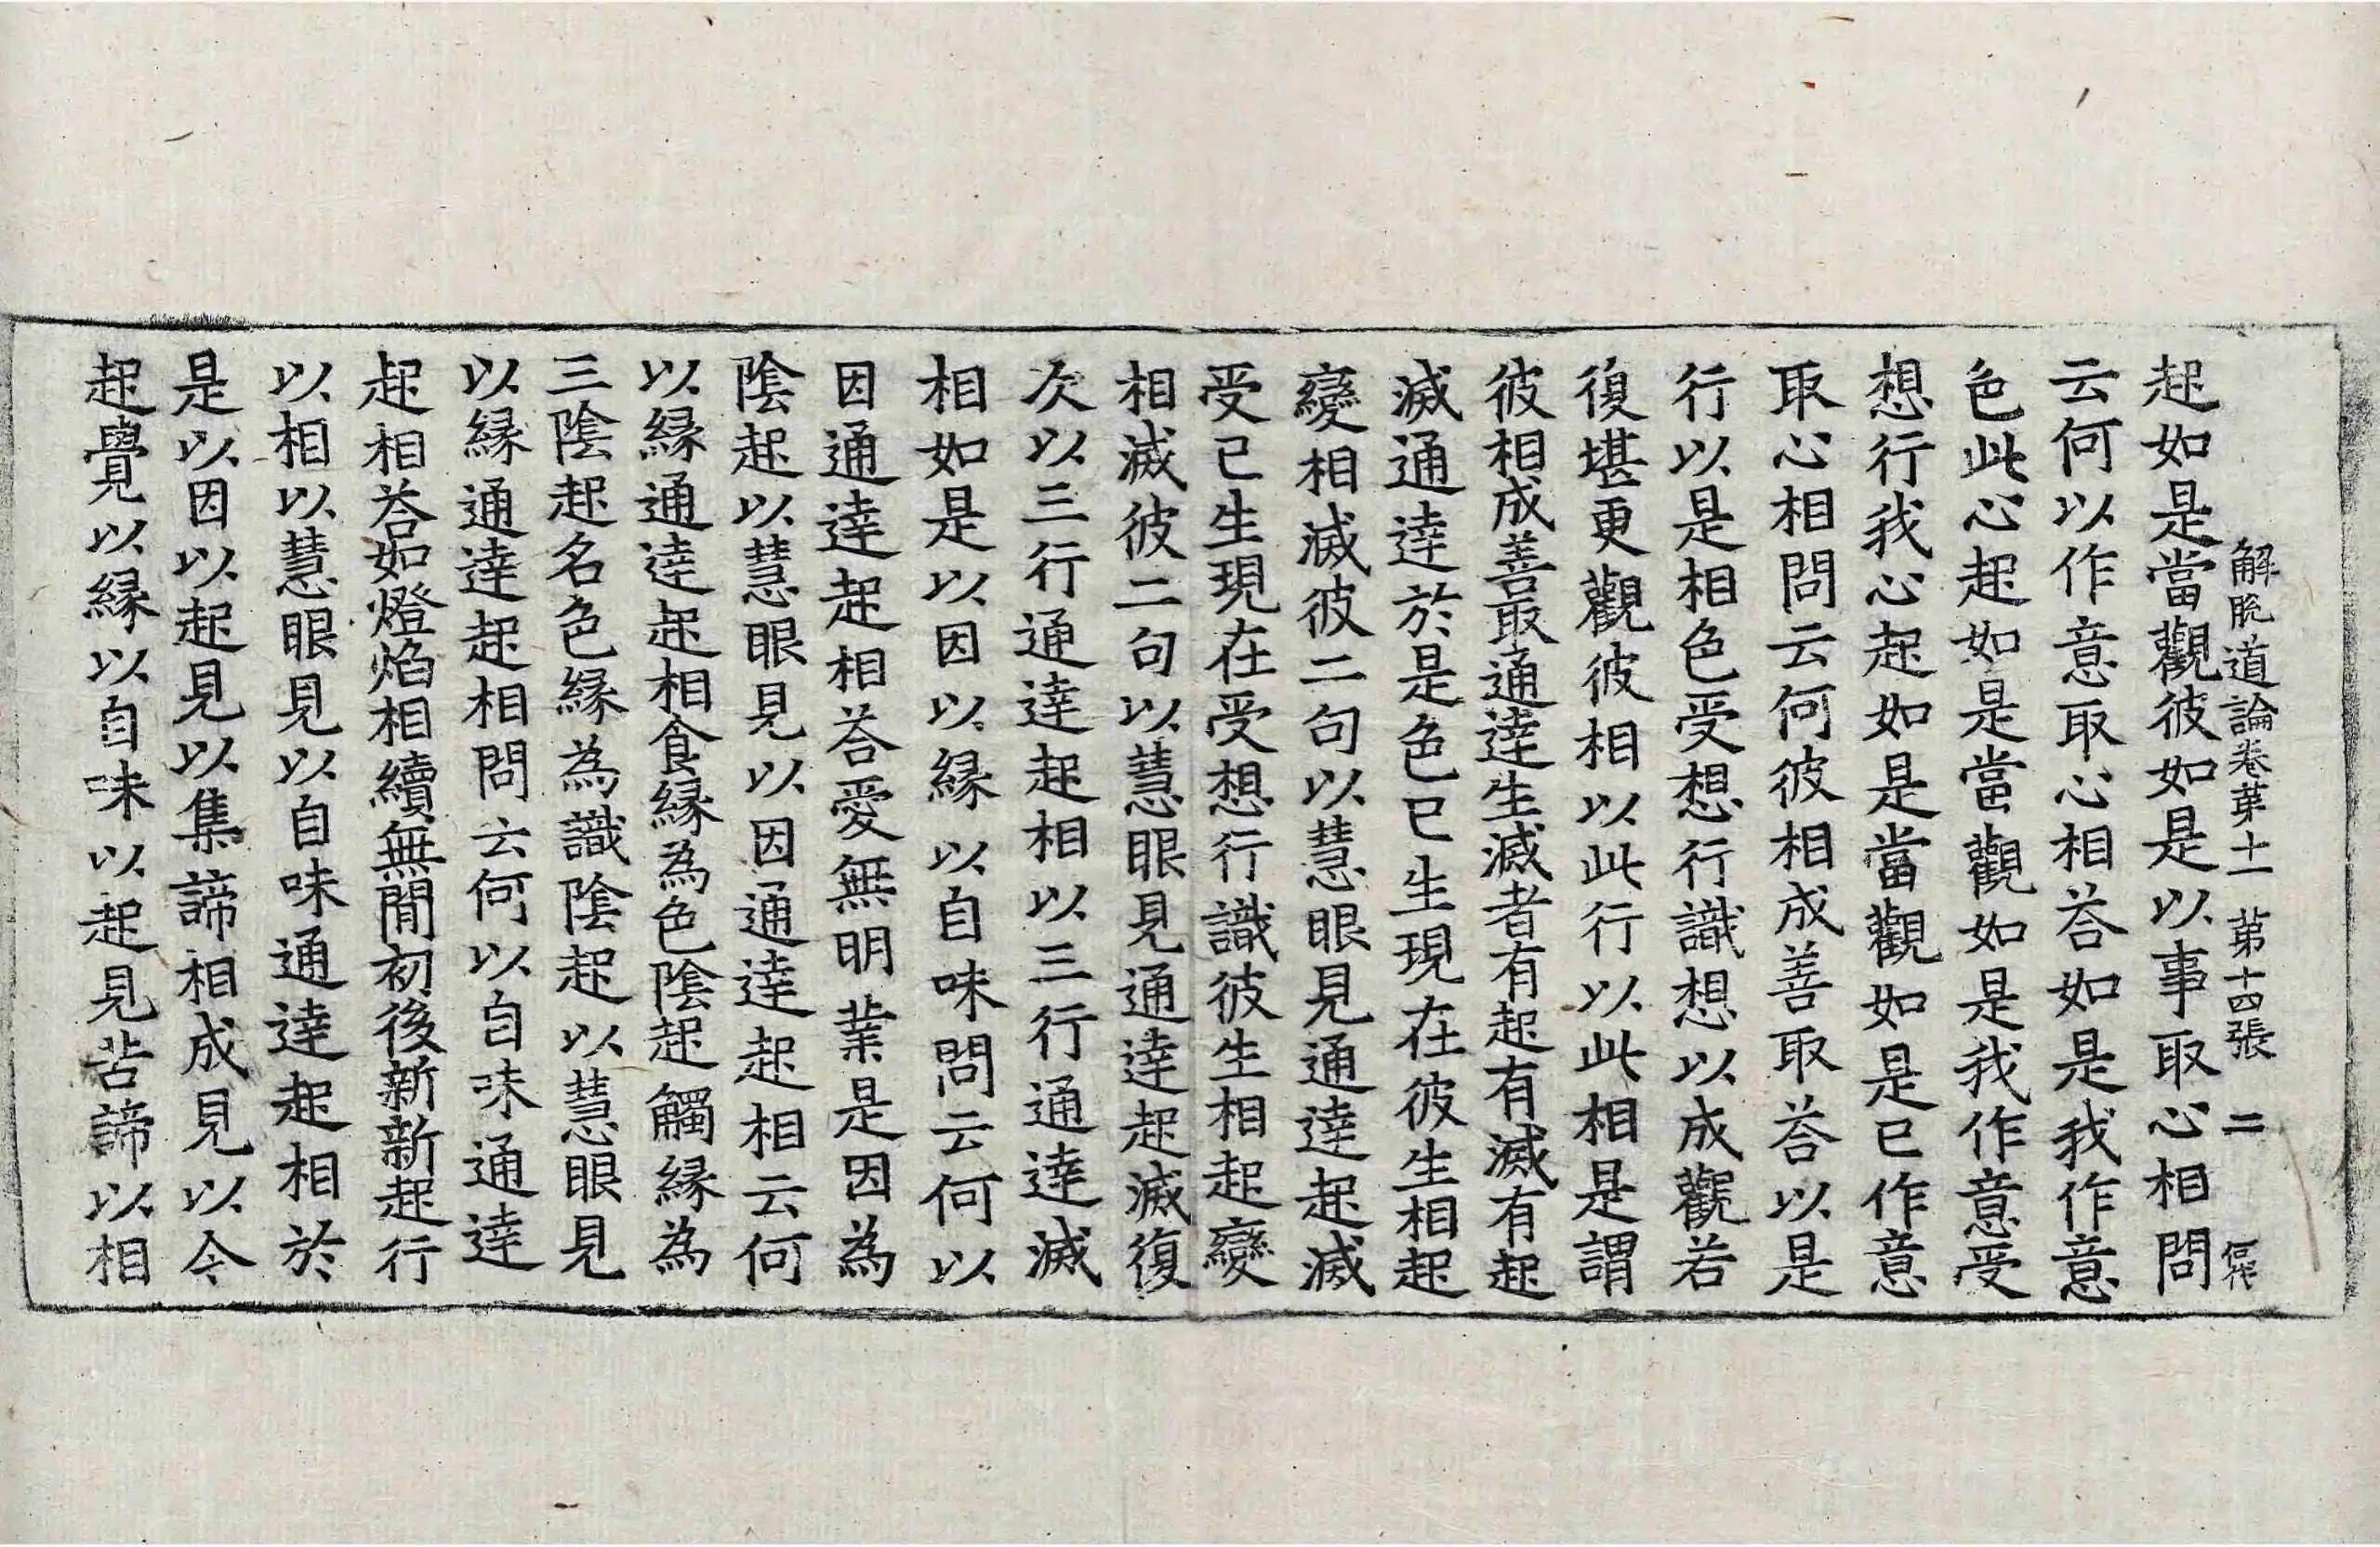 解脫道論卷第十一 第十四張 二
起如是當觀彼如是以事取心相問
云何以作意取心相荅如是我作意
色此心起如是當觀如是我作意受
想行我心起如是當觀如是已作意
取心相問云何彼相成善取荅以是
行以是相色受想行識想以成觀若
復堪更觀彼相以此行以此相是謂
彼相成善取通達生滅者有起有滅有起
滅通達於是色已生現在彼生相起
變相滅彼二句以慧眼見通達起滅
受已生現在受想行識彼生相起變
相滅彼二句以慧眼見通達起滅復
次以三行通達起相以三行通達滅
相如是以因以縁以自味問云何以
因通達起相荅愛無明業是因為
陰起以慧眼見以因通達起相云何
以縁通達起相食縁為色陰起觸縁為
三陰起名色縁為識陰起以慧眼見
以縁通達起相問云何以自味通達
起相荅如燈焰相續無間初後新新起行
以相以慧眼見以自味通達起相於
是以因以起見以集諦相成見以令
起覺以縁以自味以起見苦諦以相